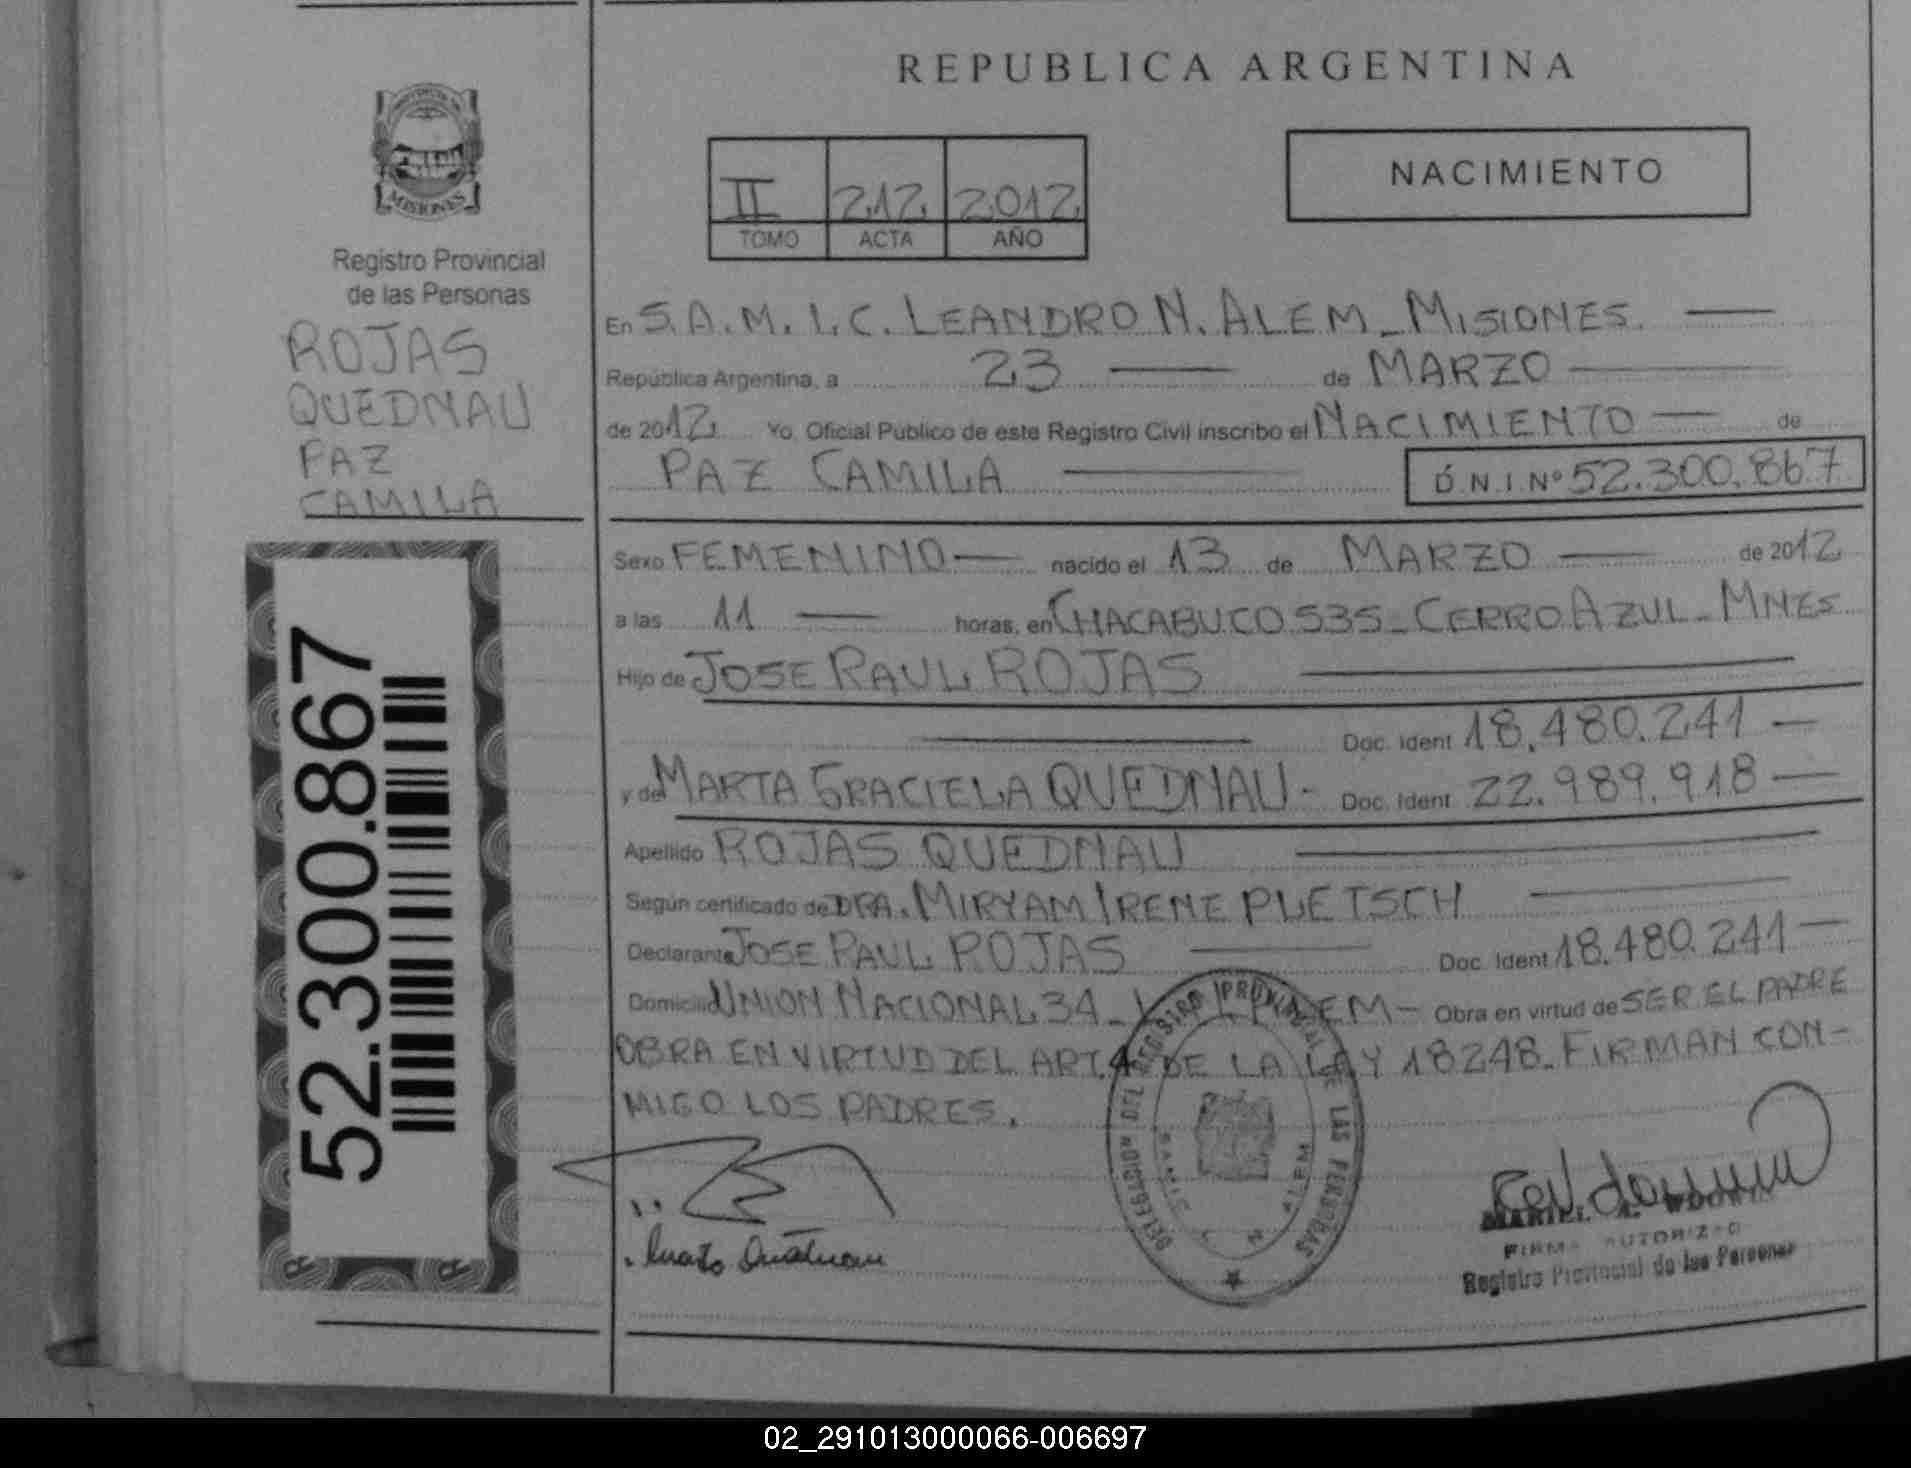 REPUBLICA ARGENTINA
PROVINCIA DE
MISIONES
Registro Provincial
de las Personas
ROJAS
QUEDNAU
PAZ
CAMILA
52.300.867
II 212 2012
TOMO ACTA AÑO
NACIMIENTO
En S.A.M.I.C. LEANDRO N. ALEM - MISIONES.
República Argentina, a 23 de MARZO
de 2012 Yo, Oficial Público de este Registro Civil inscribo el NACIMIENTO de
PAZ CAMILA D.N.I. Nº 52.300.867
Sexo FEMENINO nacido el 13 de MARZO de 2012
a las 11 horas, en CHACABUCO 535 - CERRO AZUL - MNES
Hijo de JOSE RAUL ROJAS
Doc. Ident 18.480.241
y de MARTA GRACIELA QUEDNAU - Doc. Ident 22.989.918
Apellido ROJAS QUEDNAU
Según certificado de DRA. MIRYAM IRENE PLETSCH
Declarante JOSE RAUL ROJAS Doc. Ident 18.480.241
Domicilio UNION NACIONAL 34 - Obra en virtud de SER EL PADRE
OBRA EN VIRTUD DEL ART. 4 DE LA LEY 18248. FIRMAN CON-
MIGO LOS PADRES.
DELEGACION DEL REGISTRO PROVINCIAL DE LAS PERSONAS
ALEM
FIRMA AUTORIZADA
Registro Provincial de las Personas
02_291013000066-006697